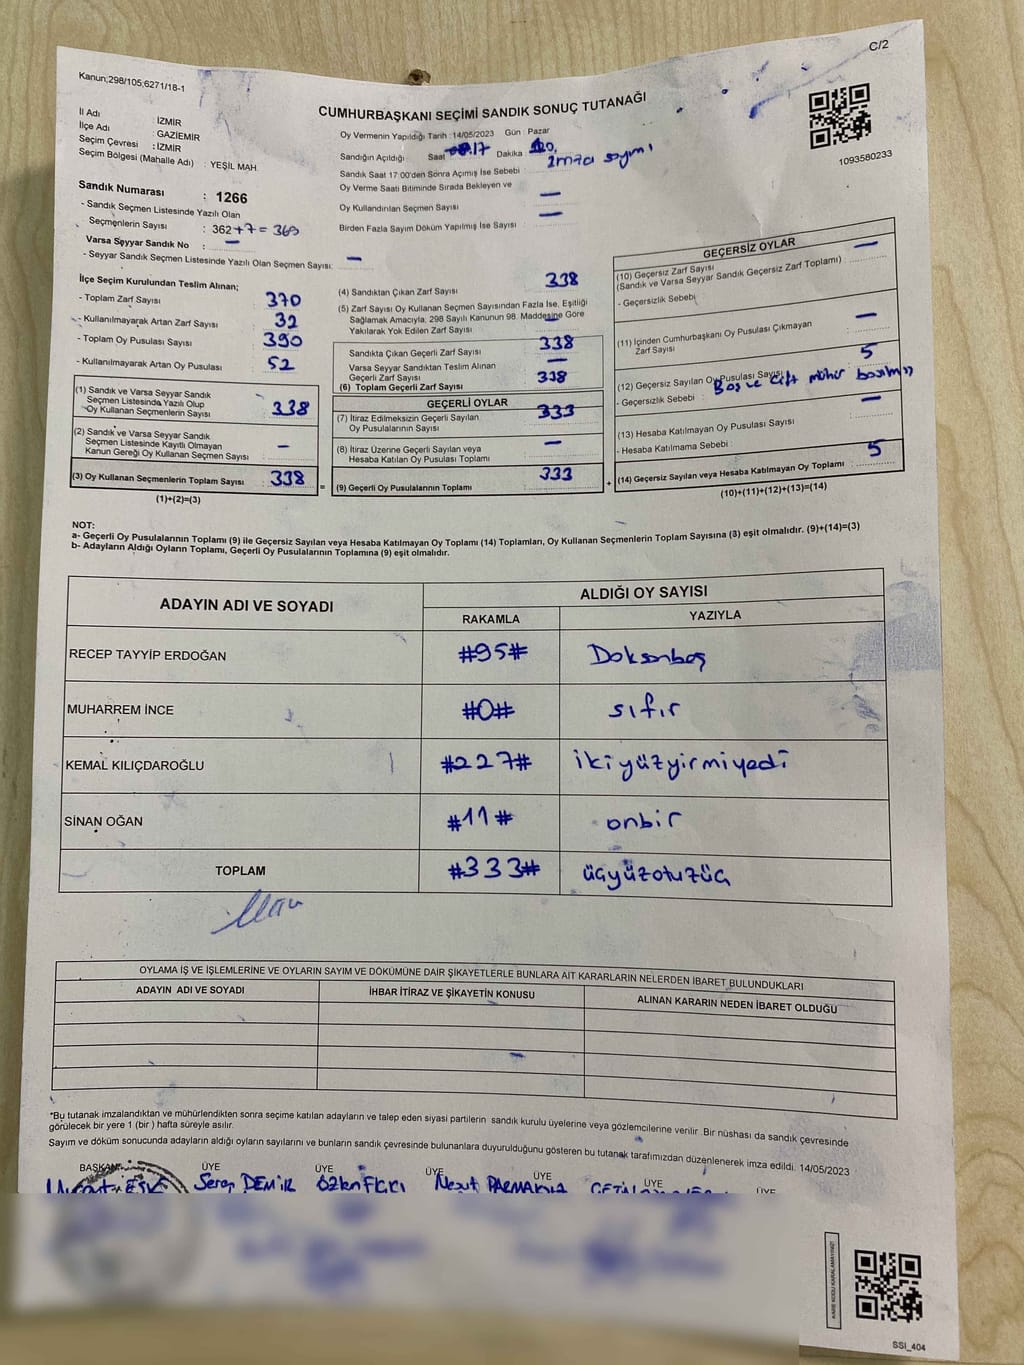 C/2
Kanun;298/105;6271/18-1
CUMHURBAŞKANI SEÇİMİ SANDIK SONUÇ TUTANAĞI
İl Adı : İZMİR
İlçe Adı : GAZİEMİR
Seçim Çevresi : İZMİR
Seçim Bölgesi (Mahalle Adı) : YEŞİL MAH
Oy Vermenin Yapıldığı Tarih :14/05/2023 Gün : Pazar
Sandığın Açıldığı Saat 17 Dakika
Sandık Saat 17:00'den Sonra Açımış İse Sebebi : imza sayımı
Oy Verme Saati Bitiminde Sırada Bekleyen ve
Oy Kullandırılan Seçmen Sayısı : —
Birden Fazla Sayım Döküm Yapılmış İse Sayısı : —
1093580233
Sandık Numarası : 1266
- Sandık Seçmen Listesinde Yazılı Olan
Seçmenlerin Sayısı : 362+7=369
Varsa Seyyar Sandık No : —
- Seyyar Sandık Seçmen Listesinde Yazılı Olan Seçmen Sayısı: —
İlçe Seçim Kurulundan Teslim Alınan;
- Toplam Zarf Sayısı : 370
- Kullanılmayarak Artan Zarf Sayısı : 32
- Toplam Oy Pusulası Sayısı : 390
- Kullanılmayarak Artan Oy Pusulası : 52
(1) Sandık ve Varsa Seyyar Sandık
Seçmen Listesinde Yazılı Olup
Oy Kullanan Seçmenlerin Sayısı : 338
(2) Sandık ve Varsa Seyyar Sandık
Seçmen Listesinde Kayıtlı Olmayan
Kanun Gereği Oy Kullanan Seçmen Sayısı : —
(3) Oy Kullanan Seçmenlerin Toplam Sayısı : 338
(1)+(2)=(3)
(4) Sandıktan Çıkan Zarf Sayısı : 338
(5) Zarf Sayısı Oy Kullanan Seçmen Sayısından Fazla İse, Eşitliği
Sağlamak Amacıyla, 298 Sayılı Kanunun 98. Maddesine Göre
Yakılarak Yok Edilen Zarf Sayısı : —
Sandıkta Çıkan Geçerli Zarf Sayısı : 338
Varsa Seyyar Sandıktan Teslim Alınan
Geçerli Zarf Sayısı : —
(6) Toplam Geçerli Zarf Sayısı : 338
GEÇERLİ OYLAR
(7) İtiraz Edilmeksizin Geçerli Sayılan
Oy Pusulalarının Sayısı : 333
(8) İtiraz Üzerine Geçerli Sayılan veya
Hesaba Katılan Oy Pusulası Toplamı : —
(9) Geçerli Oy Pusulalarının Toplamı : 333
GEÇERSİZ OYLAR
(10) Geçersiz Zarf Sayısı
(Sandık ve Varsa Seyyar Sandık Geçersiz Zarf Toplamı) : —
- Geçersizlik Sebebi :
(11) İçinden Cumhurbaşkanı Oy Pusulası Çıkmayan
Zarf Sayısı : —
(12) Geçersiz Sayılan Oy Pusulası Sayısı : 5
- Geçersizlik Sebebi : Boş ve çift mühür
(13) Hesaba Katılmayan Oy Pusulası Sayısı : —
- Hesaba Katılmama Sebebi :
(14) Geçersiz Sayılan veya Hesaba Katılmayan Oy Toplamı : 5
(10)+(11)+(12)+(13)=(14)
NOT:
a- Geçerli Oy Pusulalarının Toplamı (9) ile Geçersiz Sayılan veya Hesaba Katılmayan Oy Toplamı (14) Toplamları, Oy Kullanan Seçmenlerin Toplam Sayısına (3) eşit olmalıdır. (9)+(14)=(3)
b- Adayların Aldığı Oyların Toplamı, Geçerli Oy Pusulalarının Toplamına (9) eşit olmalıdır.
ADAYIN ADI VE SOYADI
ALDIĞI OY SAYISI
RAKAMLA YAZIYLA
RECEP TAYYİP ERDOĞAN #95# Doksanbeş
MUHARREM İNCE #0# sıfır
KEMAL KILIÇDAROĞLU #227# ikiyüzyirmiyedi
SİNAN OĞAN #11# onbir
TOPLAM #333# üçyüzotuzüç
OYLAMA İŞ VE İŞLEMLERİNE VE OYLARIN SAYIM VE DÖKÜMÜNE DAİR ŞİKAYETLERLE BUNLARA AİT KARARLARIN NELERDEN İBARET BULUNDUKLARI
ADAYIN ADI VE SOYADI İHBAR İTİRAZ VE ŞİKAYETİN KONUSU ALINAN KARARIN NEDEN İBARET OLDUĞU
*Bu tutanak imzalandıktan ve mühürlendikten sonra seçime katılan adayların ve talep eden siyasi partilerin sandık kurulu üyelerine veya gözlemcilerine verilir. Bir nüshası da sandık çevresinde
görülecek bir yere 1 (bir ) hafta süreyle asılır.
Sayım ve döküm sonucunda adayların aldığı oyların sayılarını ve bunların sandık çevresinde bulunanlara duyurulduğunu gösteren bu tutanak tarafımızdan düzenlenerek imza edildi. 14/05/2023
BAŞKAN ÜYE ÜYE ÜYE ÜYE ÜYE ÜYE
DEMİR
KARE KODU KARALAMAYINIZ!
SSI_404